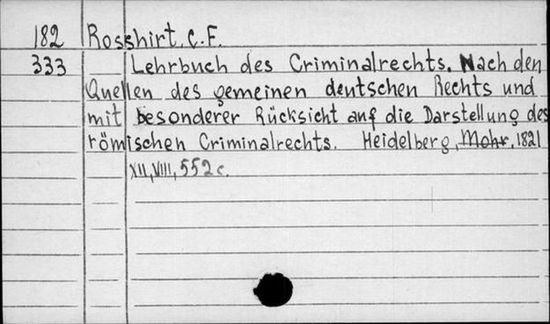 182 Rosshirt, C.F.
333 Lehrbuch des Criminalrechts. Nach den
Quellen des gemeinen deutschen Rechts und
mit besonderer Rücksicht auf die Darstellung des
römischen Criminalrechts. Heidelberg, Mohr, 1821
XII, VIII, 552 c.